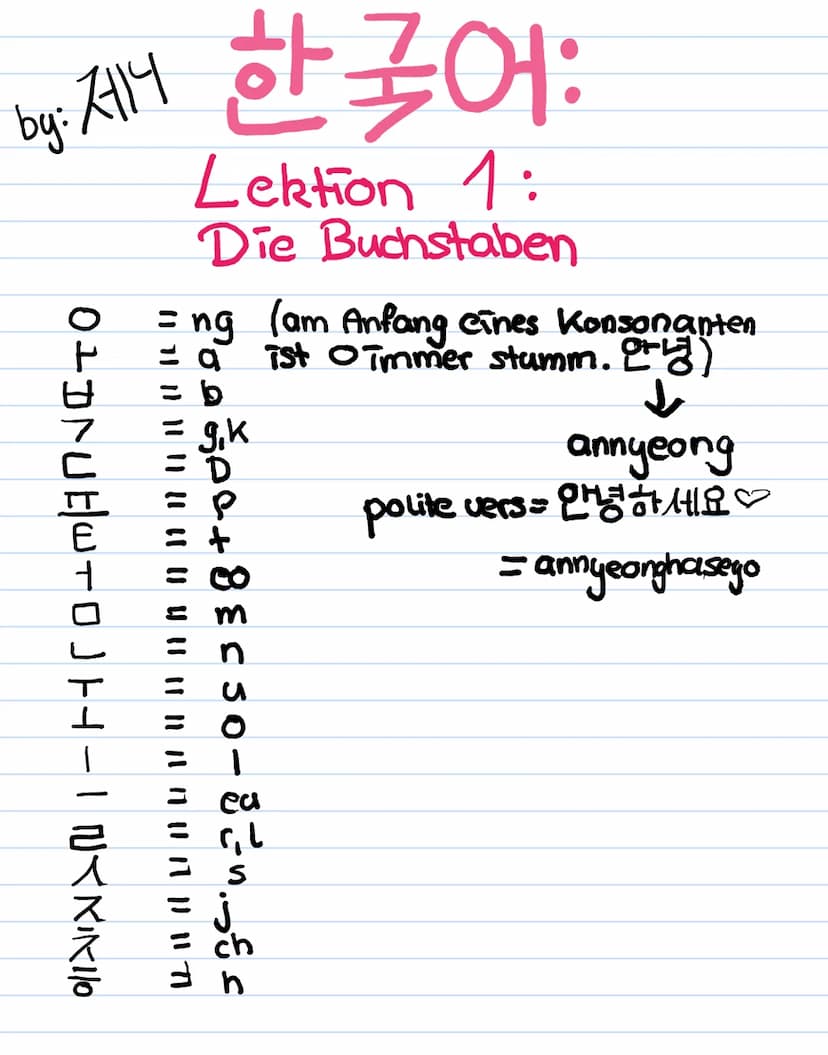 한국어:
by: 제니
Lektion 1:
Die Buchstaben
ㅇ = ng (am Anfang eines Konsonanten
ㅏ = a ist O immer stumm. 안녕)
ㅂ = b ↓
ㄱ = g,k annyeong
ㄷ = D
ㅍ = p polite vers= 안녕하세요♡
ㅌ = t
ㅓ = eo = annyeonghaseyo
ㅁ = m
ㄴ = n
ㅜ = u
ㅗ = o
ㅣ = I
ㅡ = eu
ㄹ = r,l
ㅅ = s
ㅈ = j
ㅊ = ch
ㅎ = h